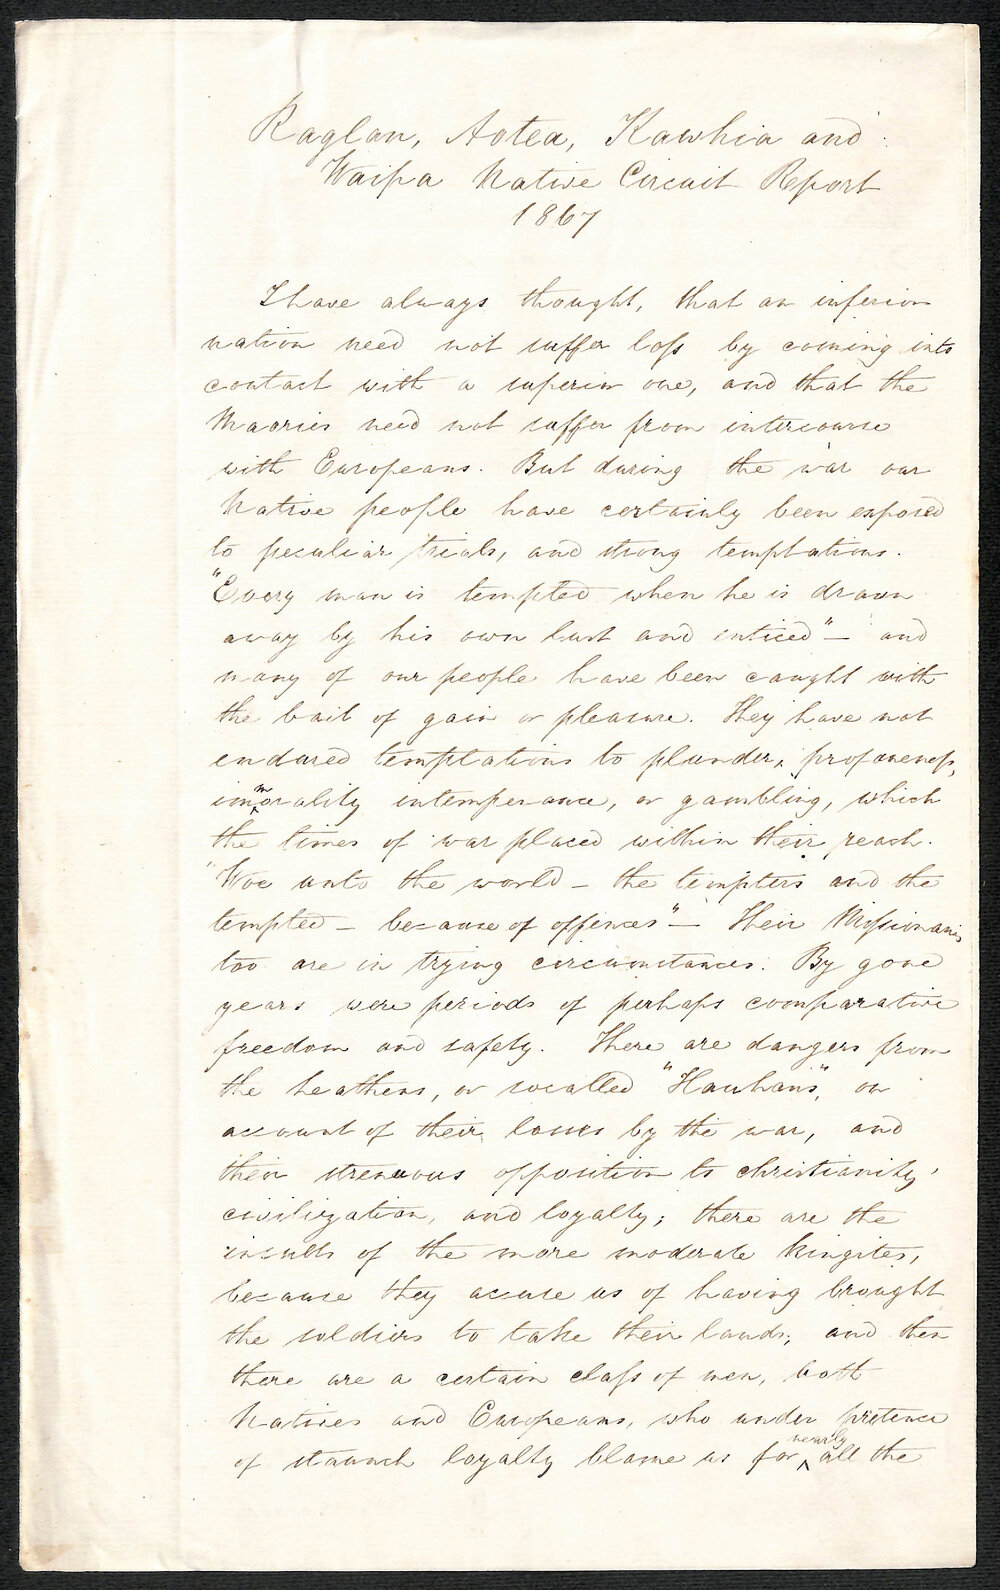 Raglan, Aotea, Kawhia and
Waipa Native Circuit Report
1867
I have always thought, that an inferior
nation need not suffer loss by coming into
contact with a superior one, and that the
Maories need not suffer from intercourse
with Europeans. But during the war our
Native people have certainly been exposed
to peculiar trials, and strong temptations.
"Every man is tempted when he is drawn
away by his own lust and enticed" — and
many of our people have been caught with
the bait of gain or pleasure. They have not
endured temptations to plunder, profaneness,
immorality intemperance, or gambling, which
the times of war placed within their reach.
"Woe unto the world — the tempters and the
tempted — because of offences" — Their Missionaries
too are in trying circumstances. By gone
years were periods of perhaps comparative
freedom and safety. There are dangers from
the heathens, or socalled "Hauhaus", on
account of their losses by the war, and
their strenuous opposition to christianity,
civilization, and loyalty; there are the
insults of the more moderate kingites,
because they accuse us of having brought
the soldiers to take their lands; and then
there are a certain class of men, both
Natives and Europeans, who under pretence
of staunch loyalty blame us for nearly all the